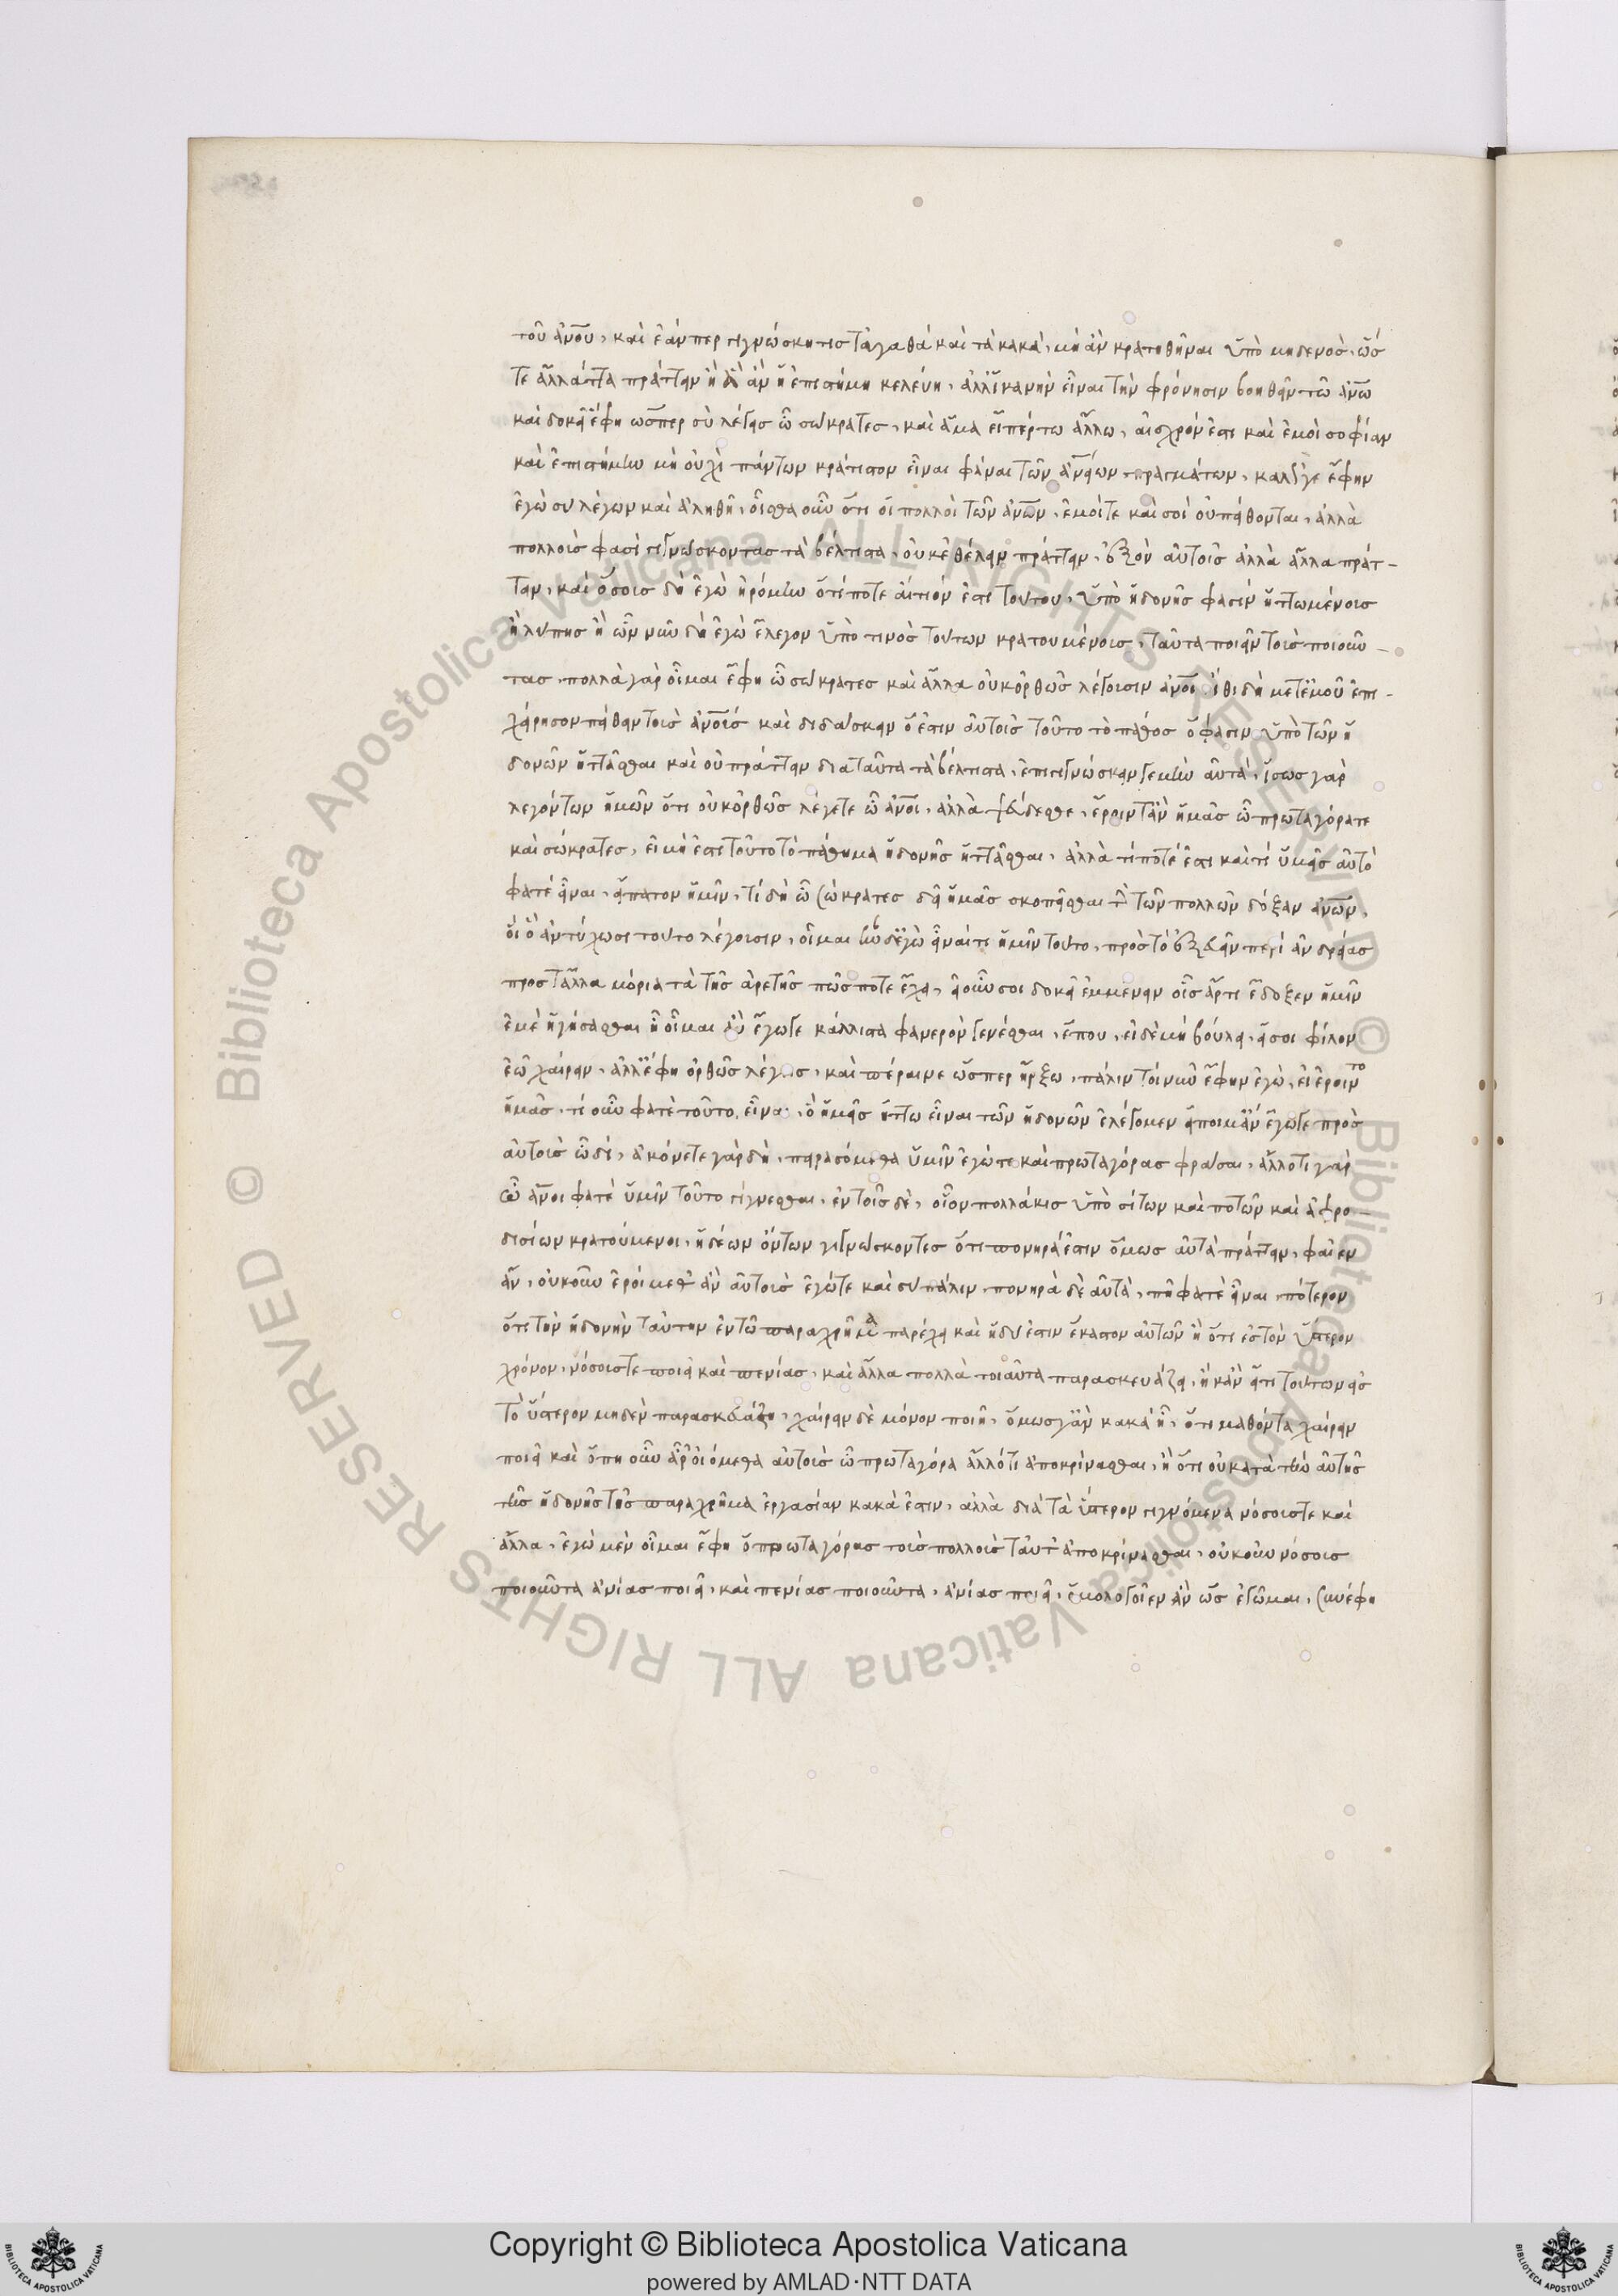 τοῦ ἀνου, καὶ ἐάνπερ γιγνώσκῃ τισ τἀγαθά καὶ τὰ κακὰ, μὴ ἂν κρατηθῆναι ὑπὸ μηδενὸσ, ὥσ
τε ἄλλάττα πράττειν ἢ ἃ ἂν ἡ ἐπιστήμη κελεύῃ, ἀλλἱκανὴν εἶναι τὴν φρόνησιν βοηθεῖν τῶ ἀνω
καὶ δοκεῖ ἔφη ὥσπερ σὺ λέγεισ ὦ σώκρατεσ, καὶ ἅμα εἴπέρτω ἄλλω, αἰσχρόν ἐστι καὶ ἐμοὶ σοφίαν
καὶ ἐπιστήμην μὴ οὐχὶ πάντων κράτιστον εἶναι φάναι τῶν ἀνείων πραγμάτων, καλῶσγε ἔφην
ἐγὼ συ λέγων καὶ ἀληθῆ, οἶσθα οὖν ὅτι οἱ πολλοὶ τῶν ἀνων, ἐμοίτε καὶ σοὶ οὐ πείθονται, ἀλλὰ
πολλοὺσ φασὶ γιγνώσκοντασ τὰ βέλτιστα, οὐκ ἐθέλειν πράττειν, ἐξὸν αὐτοῖσ ἀλλὰ ἄλλα πράτ-
τειν, καὶ ὅσουσ δὴ ἐγὼ ἠρόμην ὅτί ποτε αἴτιόν ἐστι τούτου, ὑπὸ ἡδονῆσ φασὶν ἡττωμένουσ
ἢ λύπησ ἢ ὧν νῦν δὴ ἐγὼ ἔλεγον ὑπό τινοσ τούτων κρατουμένουσ, ταῦτα ποιεῖν τοὺσ ποιοῦν-
τασ, πολλὰ γὰρ οἶμαι ἔφη ὦ σώκρατεσ καὶ ἄλλα οὐκ ὀρθῶσ λέγουσιν ἀνοι, ἴθι δὴ μετ ἐμοῦ ἐπι-
χείρησον πείθειν τοὺσ ἀνουσ καὶ διδάσκειν ὅ ἐστιν αὐτοῖσ τοῦτο τὸ πάθοσ ὅ φασιν ὑπὸ τῶν ἡ
δονῶν ἡττᾶσθαι καὶ οὐ πράττειν διαταῦτα τὰ βέλτιστα, ἐπεὶ γιγνώσκειν γε αὐτά, ἴσωσ γὰρ
λεγόντων ἡμῶν ὅτι οὐκ ὀρθῶσ λέγετε ὦ ἀνοι, ἀλλὰ ψεύδεσθε, ἔροιντ ἂν ἡμᾶσ ὦ πρωταγόρατε
καὶ σώκρατεσ, εἰ μή ἐστι τοῦτο τὸ πάθημα ἡδονῆσ ἡττᾶσθαι, ἀλλὰ τί ποτέ ἐστι καὶ τί ὑμεῖσ αὐτὸ
φατὲ εἶναι, εἴπατον ἡμῖν, τί δὴ ὦ σώκρατεσ δεῖ ἡμᾶσ σκοπεῖσθαι τὴν τῶν πολλῶν δόξαν ἀνων,
οἳ ὃ ἂν τύχωσι τοῦτο λέγουσιν, οἶμαι ἦν δἐγὼ εἶναί τι ἡμῖν τοῦτο, πρὸσ τὸ ἐξευρεῖν περὶ ἀνδρείασ
προσ τἄλλα μόρια τὰ τῆσ ἀρετῆσ πῶσ ποτε ἔχει, εἰ οὖν σοι δοκεῖ ἐμμένειν οἷσ ἄρτι ἔδοξεν ἡμῖν
ἐμὲ ἡγήσασθαι ᾗ οἶμαι ἂν ἔγωγε κάλλιστα φανερὸν γενέσθαι, ἕπου, εἰ δὲ μὴ βούλει, εἴ σοι φίλον
ἐῶ χαίρειν, ἀλλ ἔφη ὀρθῶσ λέγεισ, καὶ πέραινε ὥσπερ ἤρξω, πάλιν τοίνυν ἔφην ἐγὼ, εἰ ἔροιντο
ἡμᾶσ, τί οὖν φατὲ τοῦτο εἶναι, ὃ ἡμεῖσ ἥττω εἶναι τῶν ἡδονῶν ἐλέγομεν εἴποιμἂν ἔγωγε πρὸσ
αὐτοὺσ ὡδί, ἀκούετε γὰρ δὴ, πειρασόμεθα ὑμῖν ἐγώτε καὶ πρωταγόρασ φράσαι, ἄλλοτι γὰρ
ὦ ἀνοι φατὲ ὑμῖν τοῦτο γίγνεσθαι, ἐν τοῖσδε, οἷον πολλάκισ ὑπὸ σίτων καὶ ποτῶν καὶ ἀφρο-
δισίων κρατούμενοι, ἡδέων ὄντων γιγνώσκοντεσ ὅτι πονηρά ἐστιν ὅμωσ αὐτὰ πράττειν, φαῖεν
ἄν, οὐκοῦν ἐροίμεθ ἂν αὐτοὺσ ἐγώτε καὶ συ πάλιν, πονηρὰ δὲ αὐτὰ, πῇ φατὲ εἶναι, πότερον
ὅτι τὴν ἡδονὴν ταύτην ἐν τῶ παραχρῆμα παρέχει καὶ ἡδύ ἐστιν ἕκαστον αὐτῶν ἢ ὅτι ἐσ τὸν ὕστερον
χρόνον, νόσουστε ποιεῖ καὶ πενίασ, καὶ ἄλλα πολλὰ τοιαῦτα παρασκευάζει, ἢ κἂν εἴτι τούτων εἰσ
τὸ ὕστερον μηδὲν παρασκευάζῃ, χαίρειν δὲ μόνον ποιῇ, ὅμωσ γἂν κακὰ ᾖ, ὅτι μαθόντα χαίρειν
ποιεῖ καὶ ὅπη οὖν ἆρ οἰόμεθα αὐτοὺσ ὦ πρωταγόρα ἄλλότι ἀποκρίνασθαι, ἢ ὅτι οὐ κατὰ τὴν αὐτῆσ
τῆσ ἡδονῆσ τῆσ παραχρῆμα ἐργασίαν κακά ἐστιν, ἀλλὰ διὰ τὰ ὕστερον γιγνόμενα νόσουστε καὶ
ἄλλα, ἐγὼ μὲν οἶμαι ἔφη ὁ πρωταγόρασ τοὺσ πολλοὺσ ταῦτ ἀποκρίνασθαι, οὐκοῦν νόσουσ
ποιοῦντα ἀνίασ ποιεῖ, καὶ πενίασ ποιοῦντα, ἀνίασ ποιεῖ, ὁμολογοῖεν ἂν ὡσ ἐγῶμαι, συνέφη